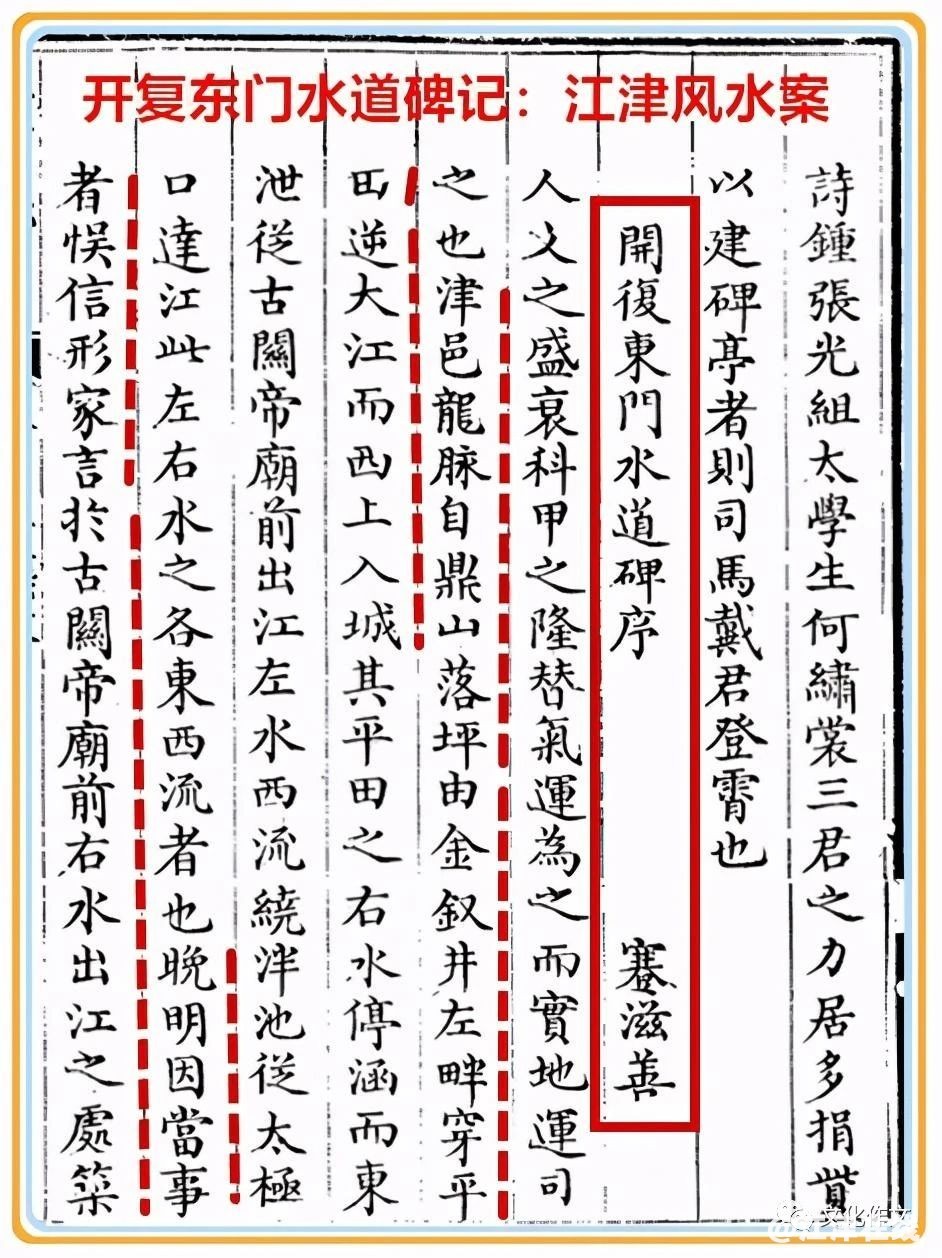 开复东门水道碑记：江津风水案
詩鍾張光組太學生何繡裳三君之力居多捐貲
以建碑亭者則司馬戴君登霄也
開復東門水道碑序 蹇滋善
人文之盛衰科甲之隆替氣運為之而實地運司
之也津邑龍脉自鼎山落坪由金釵井左畔穿平
田逆大江而西上入城其平田之右水停涵而東
泄從古關帝廟前出江左水西流繞泮池從太極
口達江此左右水之各東西流者也晚明因當事
者悮信形家言於古關帝廟前右水出江之處築